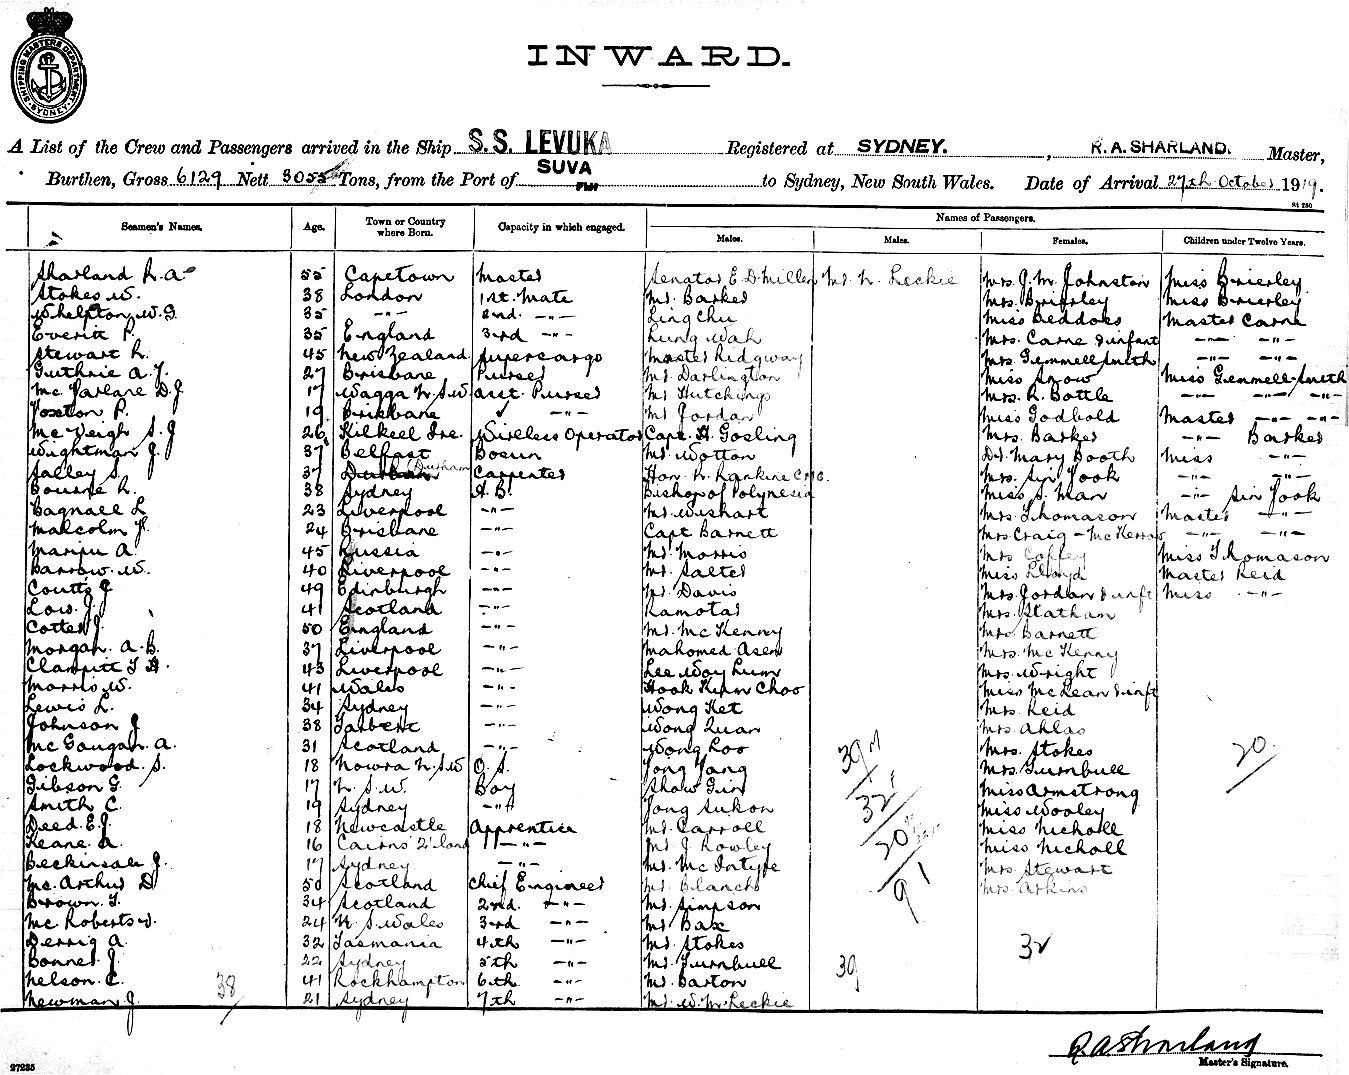 SHIPPING MASTERS DEPARTMENT SYDNEY
INWARD.
A List of the Crew and Passengers arrived in the Ship S.S. LEVUKA Registered at SYDNEY. , R. A. SHARLAND. Master,
Burthen, Gross 6129 Nett 3055 Tons, from the Port of SUVA to Sydney, New South Wales. Date of Arrival 27th October 1919.
Seamen's Names. Age. Town or Country where Born. Capacity in which engaged. Names of Passengers.
Males. Males. Females. Children under Twelve Years.
Sharland R. A. 55 Capetown Master Senator E. D. Millen Mr. N. Leckie Mrs. J. M. Johnston Miss Brierley
Stokes W. 38 London 1st. Mate Mr. Barker Mrs. Brierley Miss Brierley
Whelpton W. G. 35 -"- 2nd. -"- Ling Chu Miss Beddoes Master Carne
Everitt P. 35 England 3rd -"- Lung Wah Mrs. Carne & infant -"- -"-
Stewart R. 45 New Zealand Supercargo Master Ridgway Mrs. Gemmell Smith -"- -"-
Guthrie A. J. 27 Brisbane Purser Mr. Darlington Miss Snow Miss Gemmell-Smith
Mc Farlane D. J 17 Wagga N.S.W asst. Purser Mr Hutchings Mrs. R. Bottle -"- -"- -"-
Foxton P. 19 Brisbane -"- Mr Jordan Miss Godbold Master -"- -"-
Mc Veigh S. J 26 Kilkeel Ire. Wireless Operator Capt. H Gosling Mrs. Barker -"- Barker
Wightman J. 37 Belfast Bosun Mr. Wotton Dr. Mary Booth Miss -"-
Salley S. 37 Durham Carpenter Hon. R. Rankine C.M.G. Mrs. Sin Jook -"- -"-
Bourne R. 38 Sydney A.B. Bishop of Polynesia Miss S. Man -"- Sin Jook
Bagnall L 23 Liverpool -"- Mr. Wishart Mrs. Thomason Master -"-
Malcolm J. 24 Brisbane -"- Capt Barnett Mrs Craig-McKerrow -"- -"-
A. 45 Russia -"- Mr. Morris Mrs Coffey Miss Thomason
Barrow. W. 40 Liverpool -"- Mr. Salter Miss Lloyd Master Reid
Coutts J 49 Edinburgh -"- Mr. Davis Mrs. Jordan & inft Miss -"-
Low. J. 41 Scotland -"- Ramotar Mrs. Statham
Cotter J. 50 England -"- Mr. Mc Kenny Mrs. Barnett
Morgan. A. B. 37 Liverpool -"- Mahomed Asen Mrs. Mc Kenny
Clampitt T H. 43 Liverpool -"- Lee Woy Lum Mrs. Wright
Morris W. 41 Wales -"- Hook Kum Choo Miss McLean & inft
Lewis L. 34 Sydney -"- Wong Ket Mrs. Reid
Johnson J 38 Tarbert -"- Wong Quan Mrs. Ahlas
Mc Gougan. A. 31 Scotland -"- Wong Loo Mrs. Stokes
Lockwood. S. 18 Nowra N.S.W O.S. Jong Yang Mrs. Turnbull
Gibson G. 17 N.S.W. Boy Shaw Gin Miss Armstrong
Smith C. 19 Sydney -"- Jong Sukon Miss Wooley
Deed. E. J. 18 Newcastle Apprentice Mr. Carroll Miss Nicholl
Keane. A. 16 Cairns Q'land -"- Mr J Rowley Miss Nicholl
Beckinsale J. 17 Sydney -"- Mr. Mc Intyre Mrs. Stewart
Mc. Arthur D 50 Scotland Chief Engineer Mr. Blanch Mrs. Atkins
Brown. T. 34 Scotland 2nd. -"- Mr. Simpson
Mc Roberts J. 24 N. S. Wales 3rd -"- Mr Bax
Derrig A. 32 Tasmania 4th -"- Mr. Stokes
Bonner J. 22 Sydney 5th -"- Mr. Turnbull
Nelson. C. 41 Rockhampton 6th -"- Mr. Barton
Newman J. 21 Sydney 7th -"- Mr. W. M. Leckie
38
39 M
32
20
91
39
32
20
R A Sharland
Master's Signature.
27235